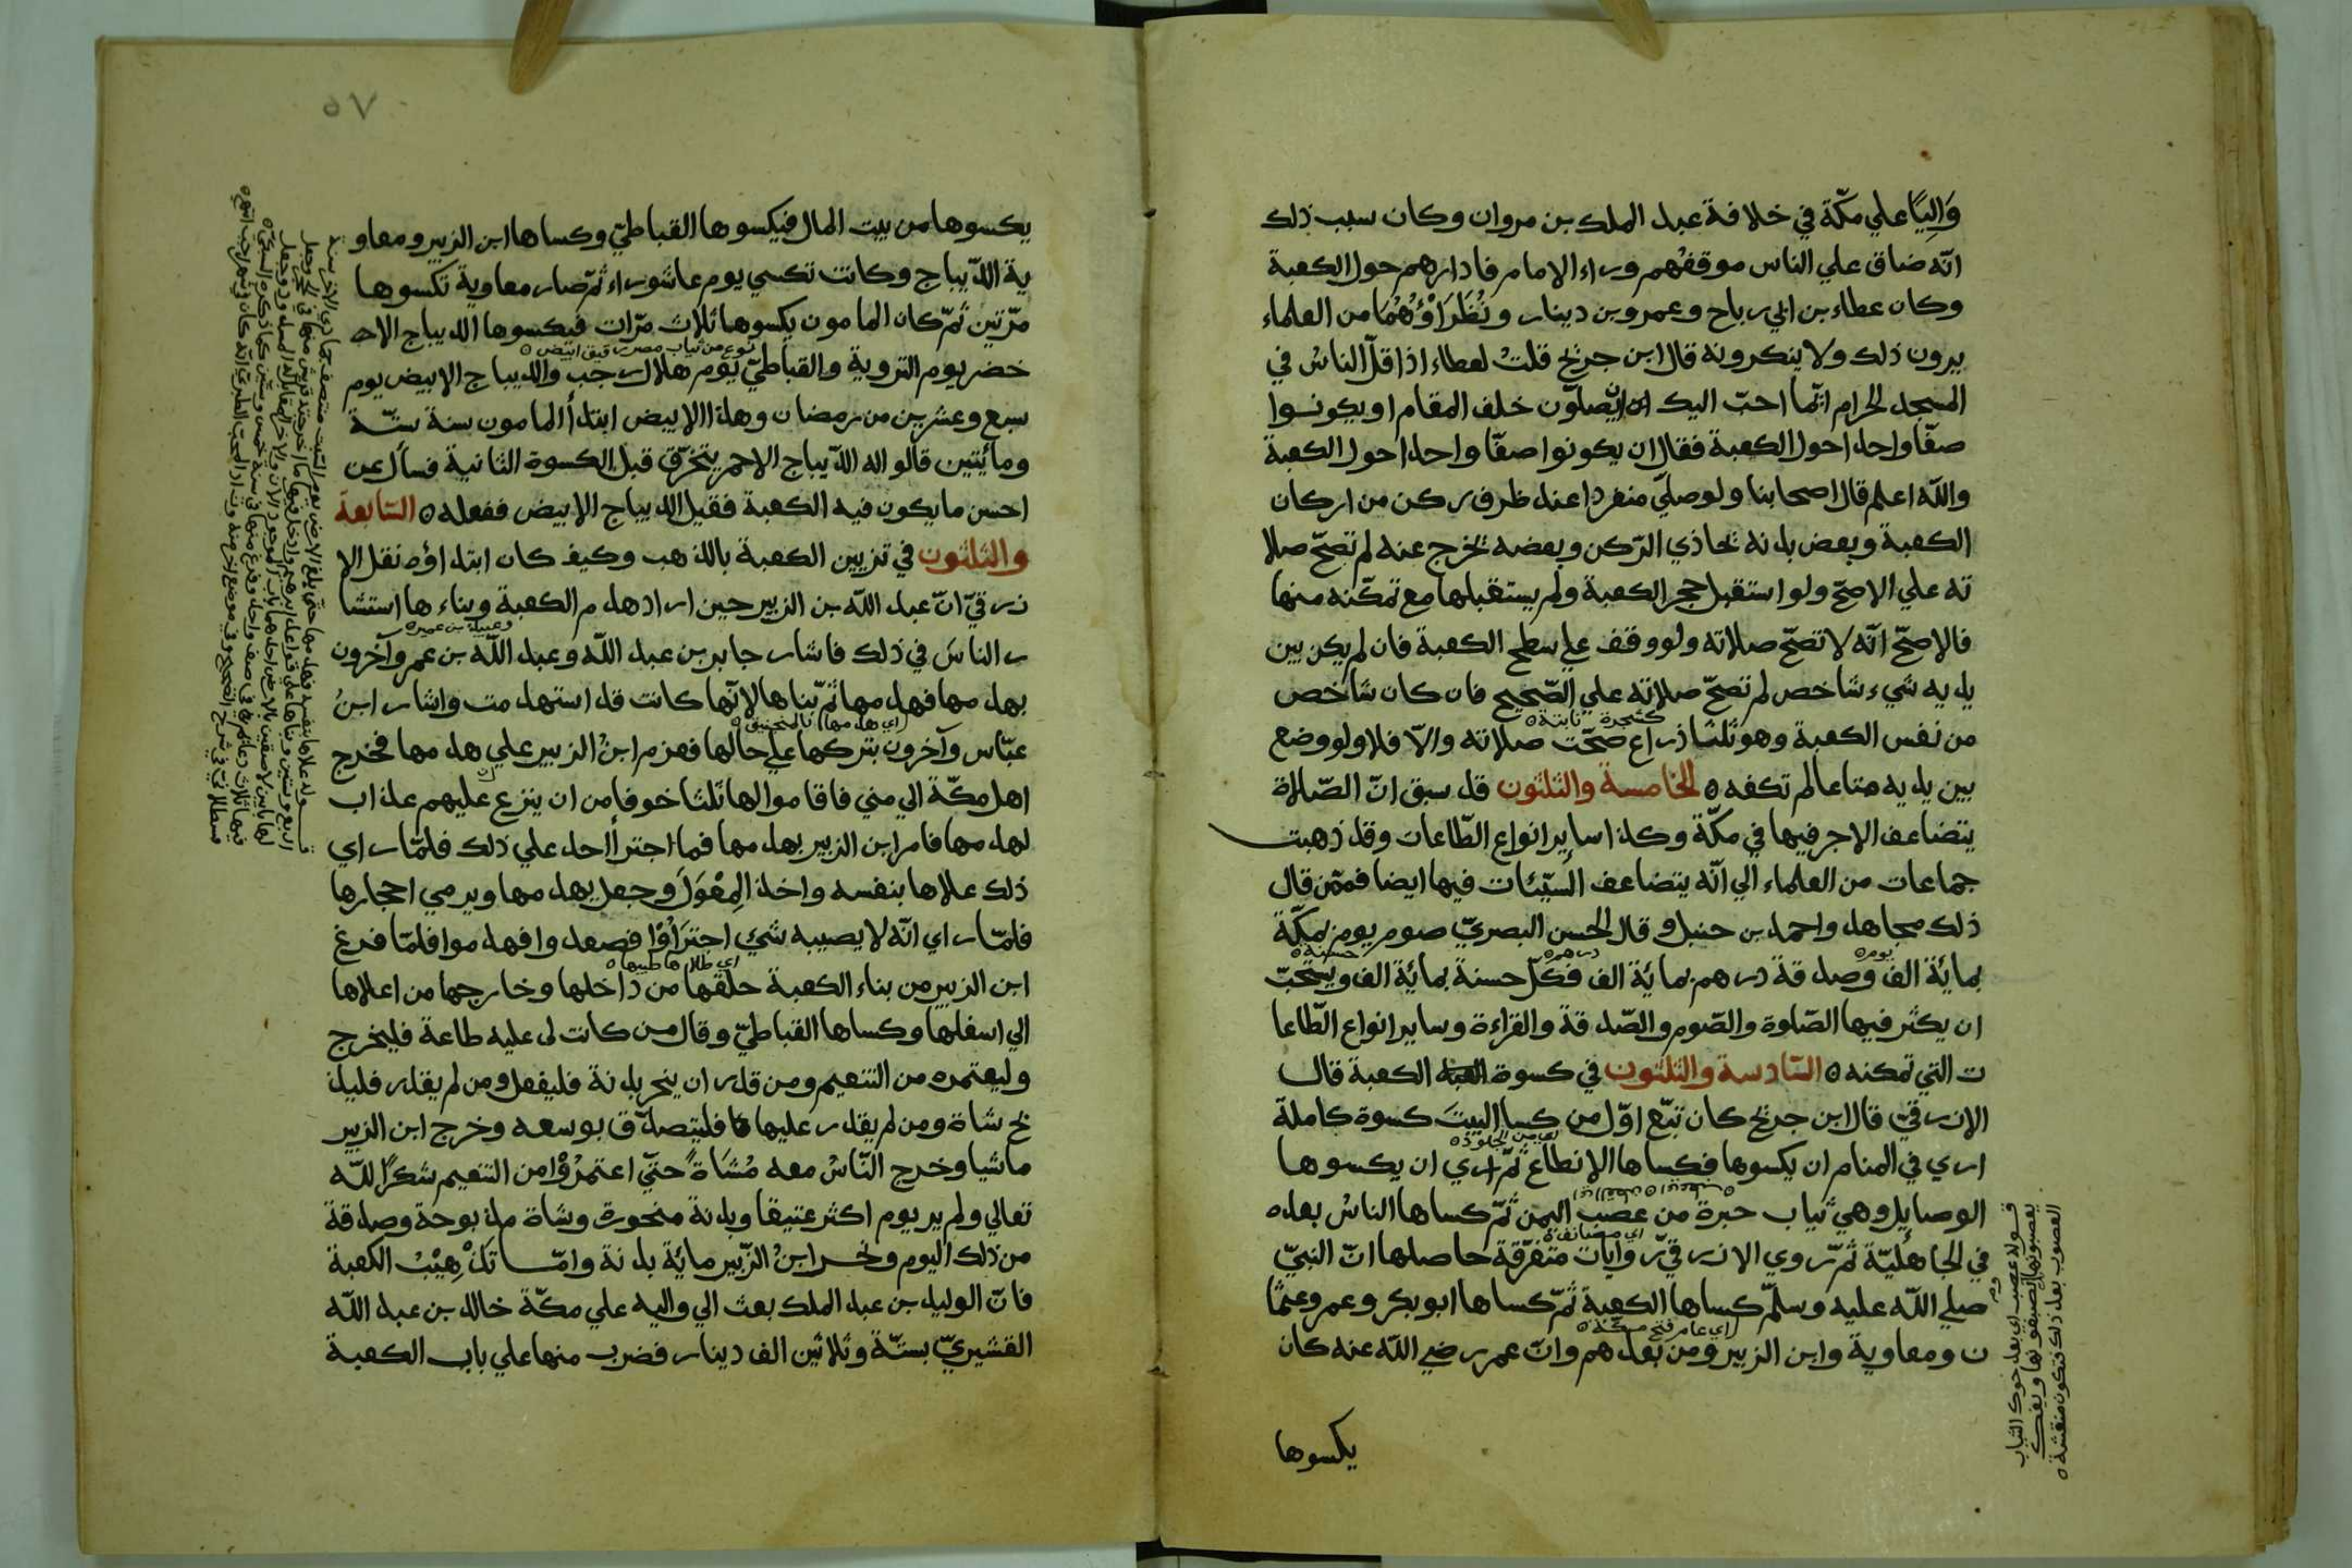 وَالِيًا علي مكّة في خلافة عبد الملك بن مروان وكان سبب ذلك
انّه ضاق علي الناس موقفهم وراء الامام فادارهم حول الكعبة
وكان عطاء بن ابي رباح وعمرو بن دينار ونُظَرَاؤُهُمَا من العلماء
يرون ذلك ولا ينكرونه قال ابن جريج قلتُ لعطاء اذا قلّ الناسُ في
المسجد الحرام ايّما احبّ اليك ان يصلّون خلف المقام او يكونوا
صفّا واحدا حول الكعبة فقال ان يكونوا صفّا واحدا حول الكعبة
واللّه اعلم قال اصحابنا ولو صلّي منفردا عند ظرف ركن من اركان
الكعبة وبعض بدنه يحاذي الرّكن وبعضه يخرج عنه لم تصحّ صلا
ته علي الاصحّ ولو استقبل حجر الكعبة ولم يستقبلها مع تمكّنه منها
فالاصحّ انّه لا تصحّ صلاته ولو وقف علي سطح الكعبة فان لم يكن بين
يديه شيء شاخص لم تصحّ صلاته علي الصّحيح فان كان شاخص
كشجرة نابتة ه
من نفس الكعبة وهو ثلثا ذراع صحّت صلاته والّا فلا ولو وضع
بين يديه متاعا لم تكفه ه الخامسة والثلثون قد سبق انّ الصّلاة
يتضاعف الاجر فيها في مكّة وكذا ساير انواع الطّاعات وقد ذهبت
جماعات من العلماء الي انّه يتضاعف السيّئات فيها ايضا فممّن قال
ذلك مجاهد واحمد بن حنبل وقال الحسن البصريّ صوم يوم بمكّة
يوم ه درهم ه حسنة ه
بمائة الف وصدقة درهم بمائة الف فكلّ حسنة بمائة الف ويستحبّ
ان يكثر فيها الصّلوة والصّوم والصّدقة والقراءة وساير انواع الطّاعا
ت التي تمكنه ه السّادسة والثلثون في كسوة الكعبة قال
الازرقيّ قال ابن جريج كان تبّع اوّل من كسا البيتَ كسوة كاملة
من الجلود ه
اري في المنام ان يكسوها فكساها الانطاع ثمّ اري ان يكسوها
الوصايل وهي ثياب حبرة من عصب اليمن ثمّ كساها الناسُ بعده
في الجاهليّة ثمّ روي الازرقيّ روايات متفرّقة حاصلها انّ النبيّ
صلي اللّه عليه وسلّم كساها الكعبة ثمّ كساها ابو بكر وعمر وعثما
اي عام فتح مكّة ه
ن ومعاوية وابن الزبير ومن بعدهم وانّ عمر رضي اللّه عنه كان
يكسوها
قوله عصب اي بعد حوك الثياب
يعصبونها لصبغونها ويفك
العصوب بعد ذلك فتكون منقشة ه
٥٧
يكسوها من بيت المال فيكسوها القباطيّ وكساها ابن الزبير ومعاو
ية الدّيباج وكانت تكسي يوم عاشوراء ثمّ صار معاوية تكسوها
مرّتين ثمّ كان المامون يكسوها ثلاث مرّات فيكسوها الديباج الاحـ
نوع من ثياب مصر رقيق ابيض ه
خضر يوم التروية والقباطيّ يوم هلال رجب والديباج الابيض يوم
سبع وعشرين من رمضان وهذا الابيض ابتدأ المامون سنة ستّة
ومأيتين قالوا له الدّيباج الاحمر يتخرّق قبل الكسوة الثانية فسأل عن
احسن ما يكون فيه الكعبة فقيل الديباج الابيض ففعله ه السّابعة
والثلثون في تزيين الكعبة بالذهب وكيف كان ابتداؤه نقل الا
زرقيّ انّ عبد اللّه بن الزبير حين اراد هدم الكعبة وبناءها استشا
وعبيد بن عمير ه
ر الناسَ في ذلك فاشار جابر بن عبد اللّه وعبد اللّه بن عمر وآخرون
بهدمها فهدمها ثمّ بناها لانّها كانت قد استهدمت واشار ابنُ
اي هدمها بالمنجنيق ه
عبّاس وآخرون بتركها علي حالها فعزم ابنُ الزبير علي هدمها فخرج
اهل مكّة الي مني فاقاموا لها ثلثا خوفا من ان ينزع عليهم عذاب
لهدمها فامر ابن الزبير بهدمها فما اجترأ احد علي ذلك فلمّا راي
ذلك علاها بنفسه واخذ المِعْوَلَ وجعل يهدمها ويرمي احجارها
فلمّا راي انّه لا يصيبه شئ اجترَاؤا فصعدوا فهدموا فلمّا فرغ
اي طلاها طيبها ه
ابن الزبير من بناء الكعبة خلّقها من داخلها وخارجها من اعلاها
الي اسفلها وكساها القباطيّ وقال من كانت لي عليه طاعة فليخرج
وليعتمره من التنعيم ومن قدر ان ينحر بدنة فليفعل ومن لم يقدر فليذ
بح شاة ومن لم يقدر عليها فليتصدّق بوسعه وخرج ابن الزبير
ماشيا وخرج النّاسُ معه مُشَاةً حتّي اعتمرُوْا من التنعيم شكرًا للّه
تعالي ولم ير يوم اكثر عتيقا وبدنة منحورة وشاة مذبوحة وصدقة
من ذلك اليوم ونحر ابنُ الزّبير مائة بدنة وامّا تَذْهِيْبُ الكعبة
فانّ الوليد بن عبد الملك بعث الي واليه علي مكّة خالد بن عبد اللّه
القشيريّ بستّة وثلاثين الف دينار فضرب منها علي باب الكعبة